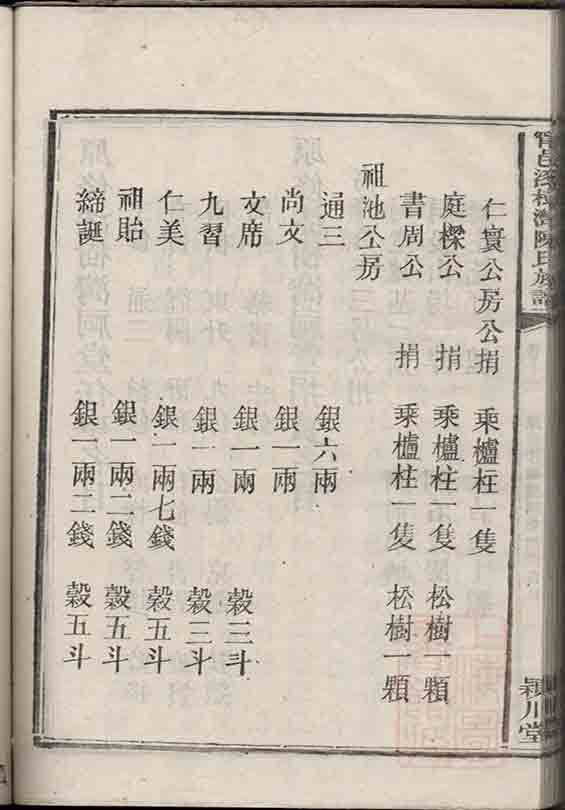 陳氏族譜
仁寰公房公捐 乘櫨柱一隻
庭樑公 捐 乘櫨柱一隻 松樹一顆
書周公 捐 乘櫨柱一隻 松樹一顆
祖池公房
通三 銀六兩
尚文 銀一兩
文席 銀一兩 穀三斗
九習 銀一兩 穀三斗
仁美 銀一兩七錢 穀五斗
祖貽 銀一兩二錢 穀五斗
締誕 銀一兩二錢 穀五斗
潁川堂